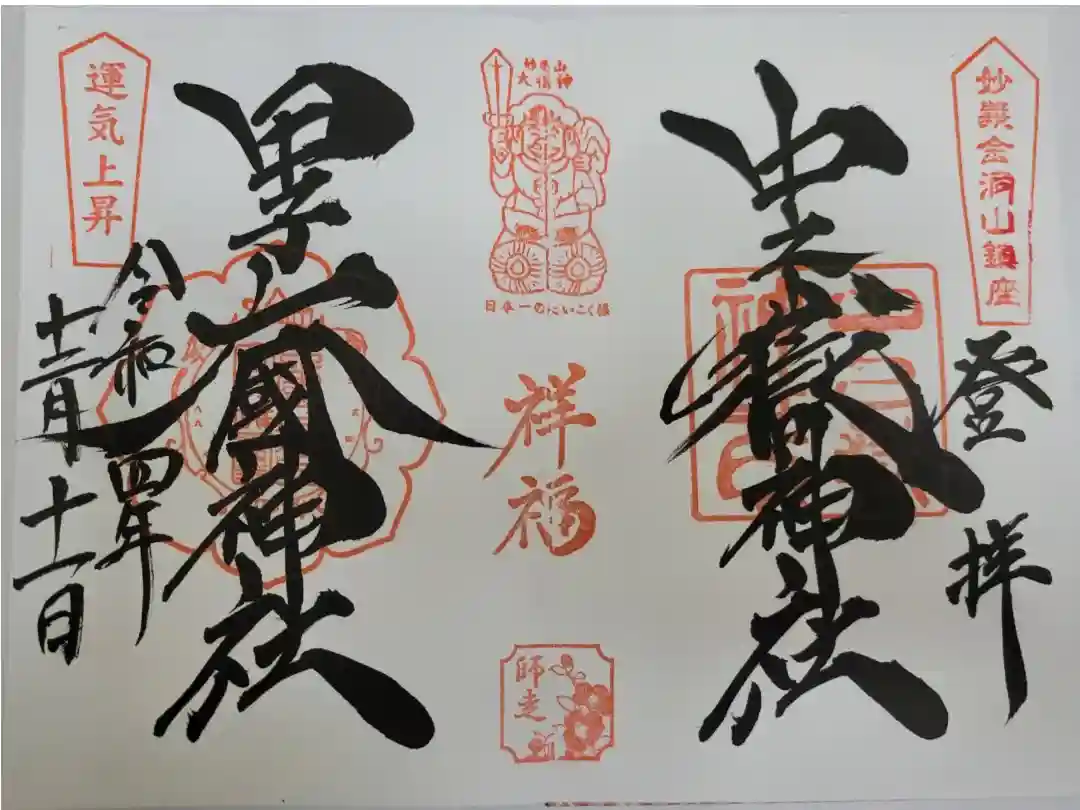 妙義金洞山鎮座
登拝
中之嶽神社
妙義山
大黒神
日本一のだいこく様
祥福
師走
甲子大國神社
運気上昇
令和四年
十二月十一日